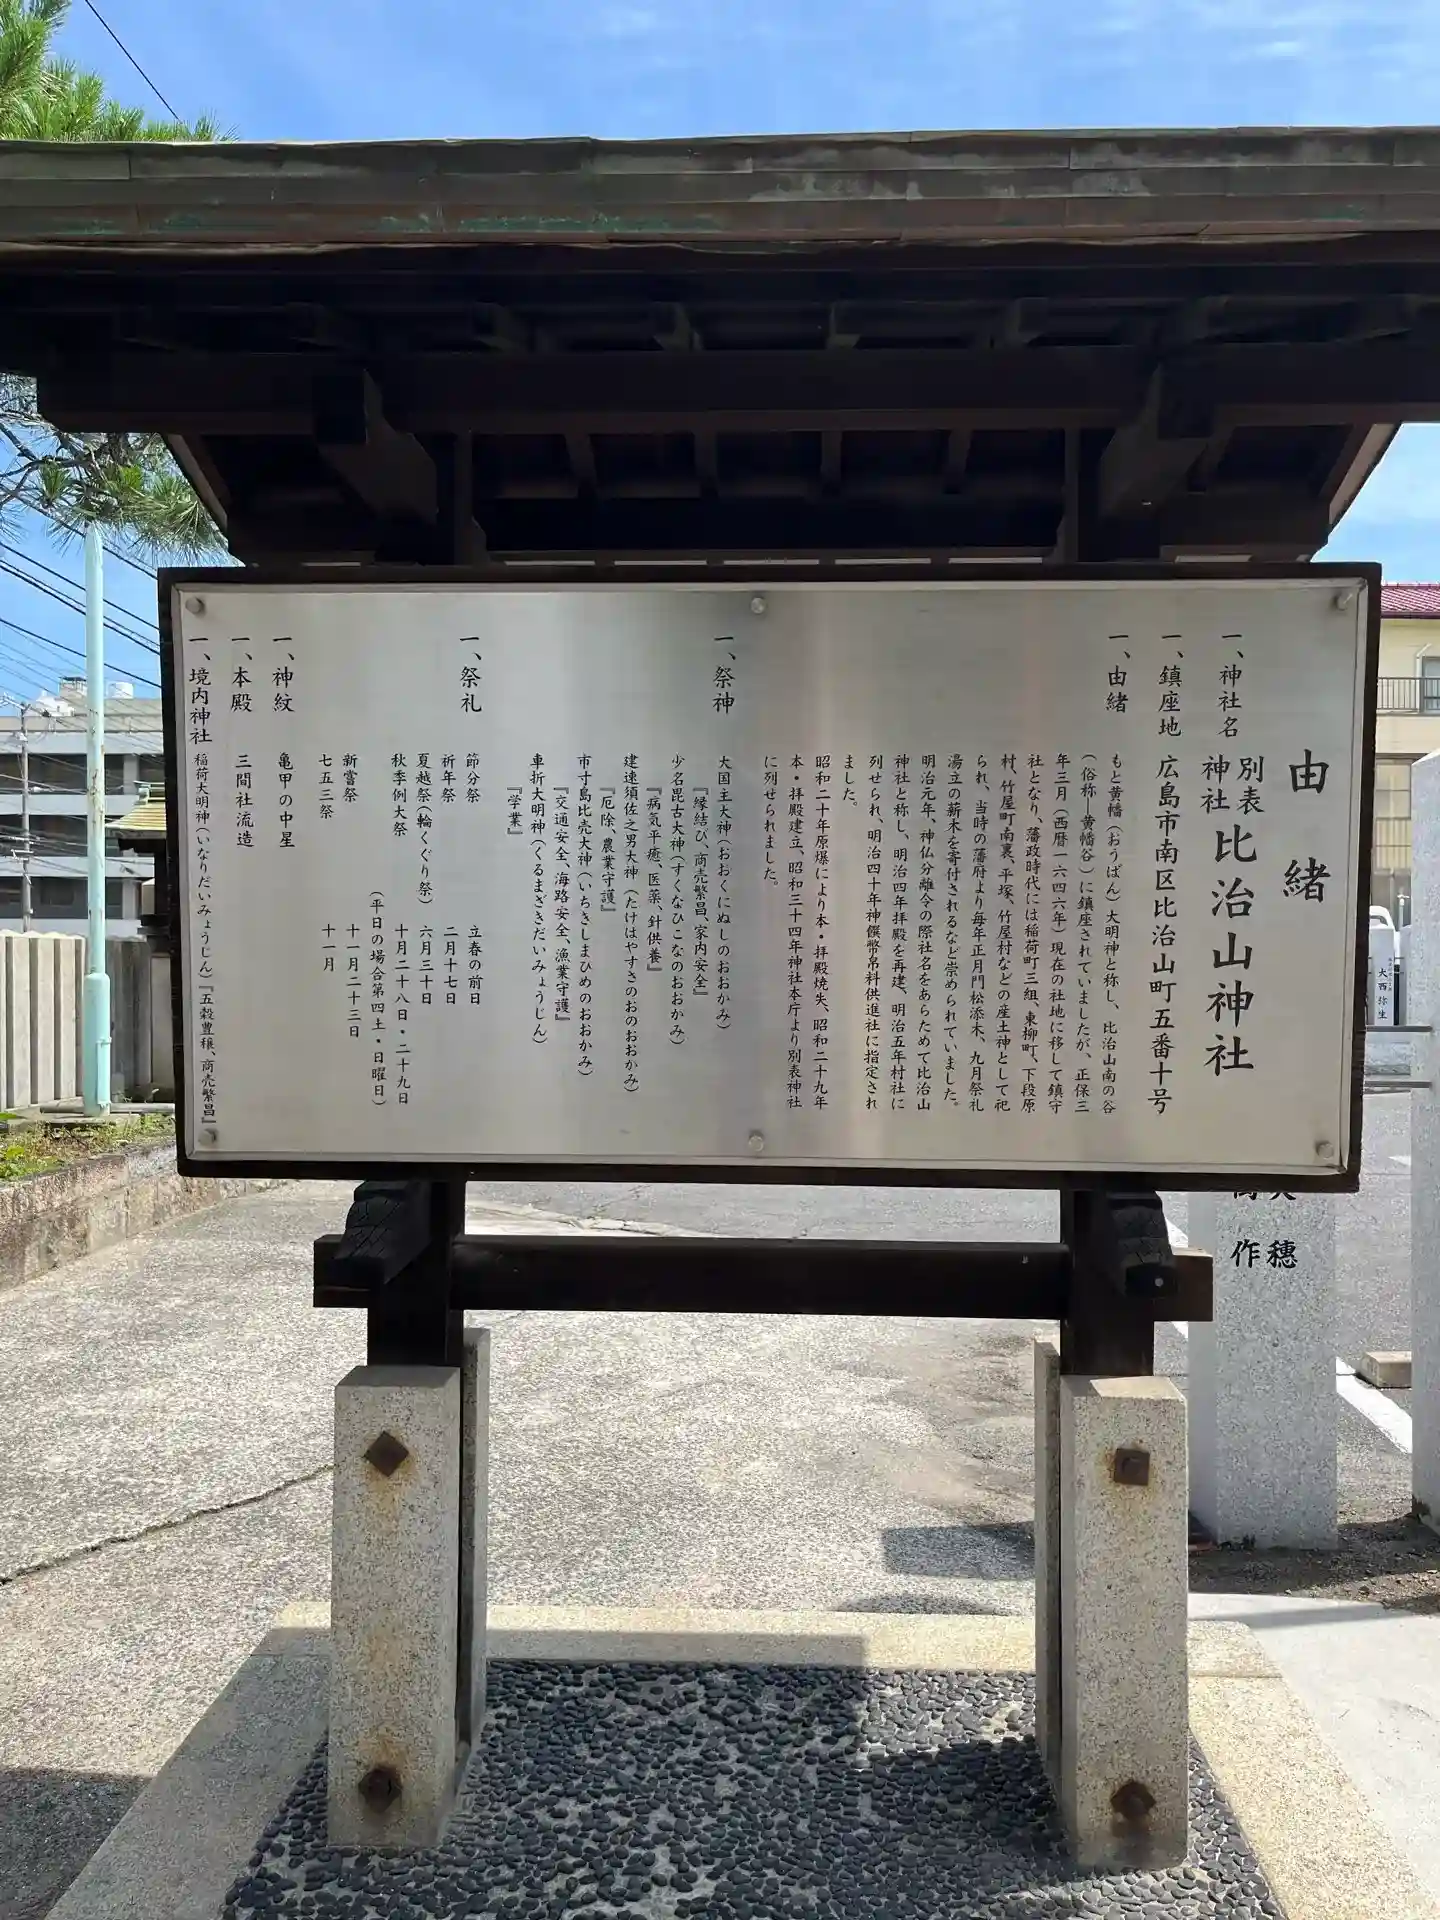 由緒
一、神社名
別表
神社
比治山神社
一、鎮座地
広島市南区比治山町五番十号
一、由緒
もと黄幡(おうばん)大明神と称し、比治山南の谷
(俗称―黄幡谷)に鎮座されていましたが、正保三
年三月(西暦一六四六年)現在の社地に移して鎮守
社となり、藩政時代には稲荷町三組、東柳町、下段原
村、竹屋町南裏、平塚、竹屋村などの産土神として祀
られ、当時の藩府より毎年正月門松添木、九月祭礼
湯立の薪木を寄付されるなど崇められていました。
明治元年、神仏分離令の際社名をあらためて比治山
神社と称し、明治四年拝殿を再建、明治五年村社に
列せられ、明治四十年神饌幣帛料供進社に指定され
ました。
昭和二十年原爆により本・拝殿焼失、昭和二十九年
本・拝殿建立、昭和三十四年神社本庁より別表神社
に列せられました。
一、祭神
大国主大神(おおくにぬしのおおかみ)
『縁結び、商売繁昌、家内安全』
少名毘古大神(すくなひこなのおおかみ)
『病気平癒、医薬、針供養』
建速須佐之男大神(たけはやすさのおのおおかみ)
『厄除、農業守護』
市寸島比売大神(いちきしまひめのおおかみ)
『交通安全、海路安全、漁業守護』
車折大明神(くるまざきだいみょうじん)
『学業』
一、祭礼
節分祭 立春の前日
祈年祭 二月十七日
夏越祭(輪くぐり祭) 六月三十日
秋季例大祭 十月二十八日・二十九日
(平日の場合第四土・日曜日)
新嘗祭 十一月二十三日
七五三祭 十一月
一、神紋
亀甲の中星
一、本殿
三間社流造
一、境内神社
稲荷大明神(いなりだいみょうじん)『五穀豊穣、商売繁昌』
穂
作
大西弥生